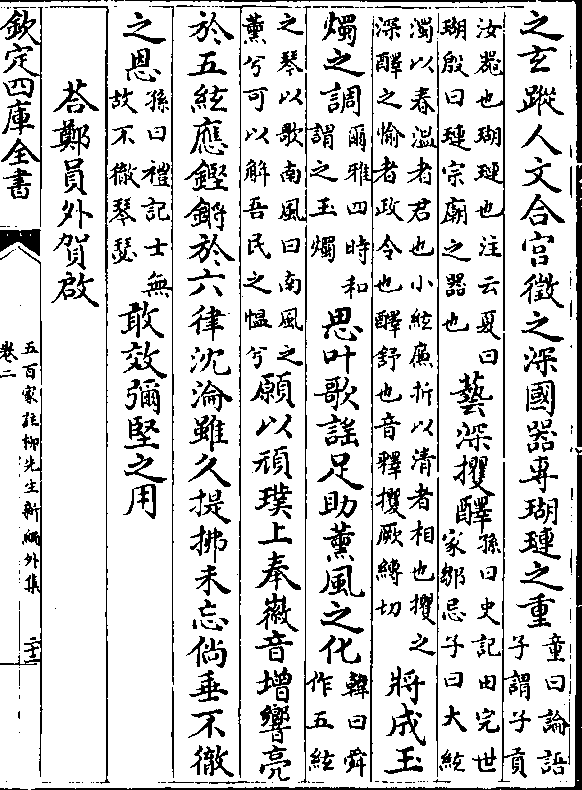 之玄蹤人文合宮徵之深國器専瑚璉之重童曰論語
子謂子貢
汝器也瑚璉也注云夏曰
瑚殷曰璉宗廟之器也藝深攫醳孫曰史記田完世
家鄒忌子曰大絃
濁以春温者君也小絃廉折以清者相也攫之
深醳之愉者政令也醳舒也音釋攫厥縛切將成玉
燭之調爾雅四時和
謂之玉燭思叶歌謡足助薰風之化韓曰舜
作五絃
之琴以歌南風曰南風之
薰兮可以解吾民之愠兮願以頑璞上奉徽音增響亮
於五絃應鏗鏘於六律沈淪雖久提拂未忘倘垂不徹
之恩孫曰禮記士無
故不徹琴瑟敢效彌堅之用
荅鄭員外賀啟
欽定四庫全書
五百家註柳先生新編外集
卷二